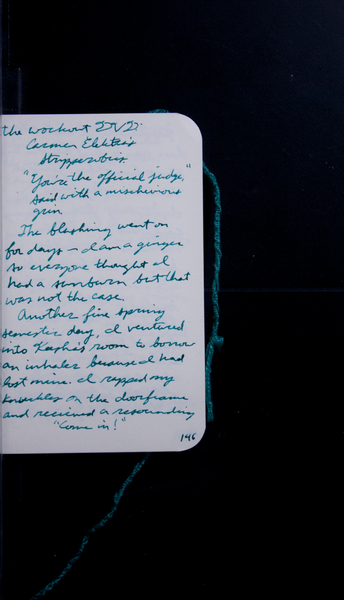 the workout DVD:
Carmen Elektra's
Stripperobix
"You're the official judge,"
said with a mischevious
grin.
The blushing went on
for days – I am a ginger
so everyone thought I
had a sunburn but that
was not the case.
Another fine spring
semester day, I ventured
into Kasha's room to borrow
an inhaler because I had
lost mine. I rapped my
knuckles on the doorframe
and recieved a resounding
"Come in!"
146